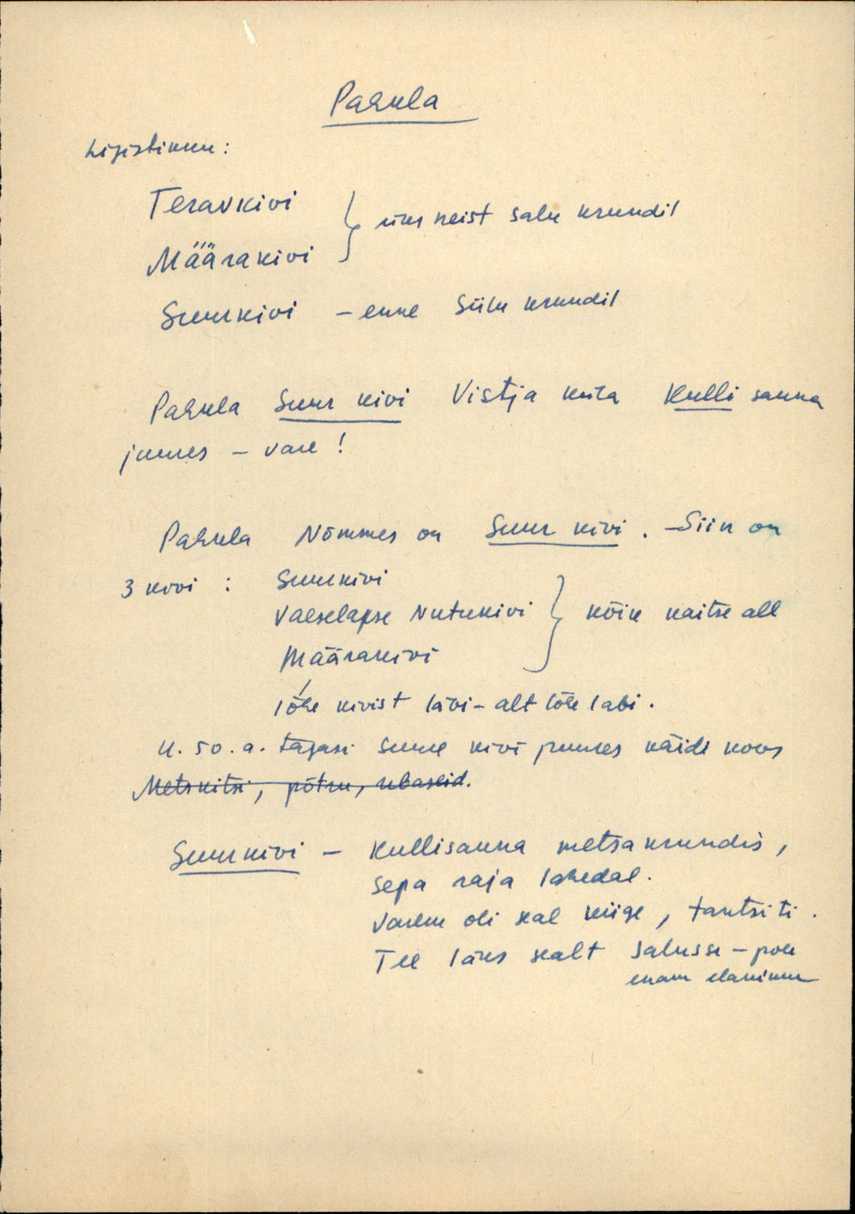 Pahula
Ligistikku:
Teravkivi } üks neist Salu krundil
Määrakivi
Suurkivi - enne Siilu krundil
Pahula Suur kivi Vistja küla Kulli sauna
juures - vare!
Pahula Nõmmes on Suur kivi. - Siin on
3 kivi : Suurkivi
Vaeselapse Nutukivi } kõik kaitse all
Määrakivi
lõhe kivist läbi - alt lõhe läbi.
U. 50. a. tagasi Suure kivi juures käidi koos
Metskitsi, põtru, rebaseid.
Suurkivi - Kullisauna metsakrundis,
Sepa raja lähedal.
Varem oli seal kiige, tantsiti.
Tee läks sealt Salusse - pole
enam